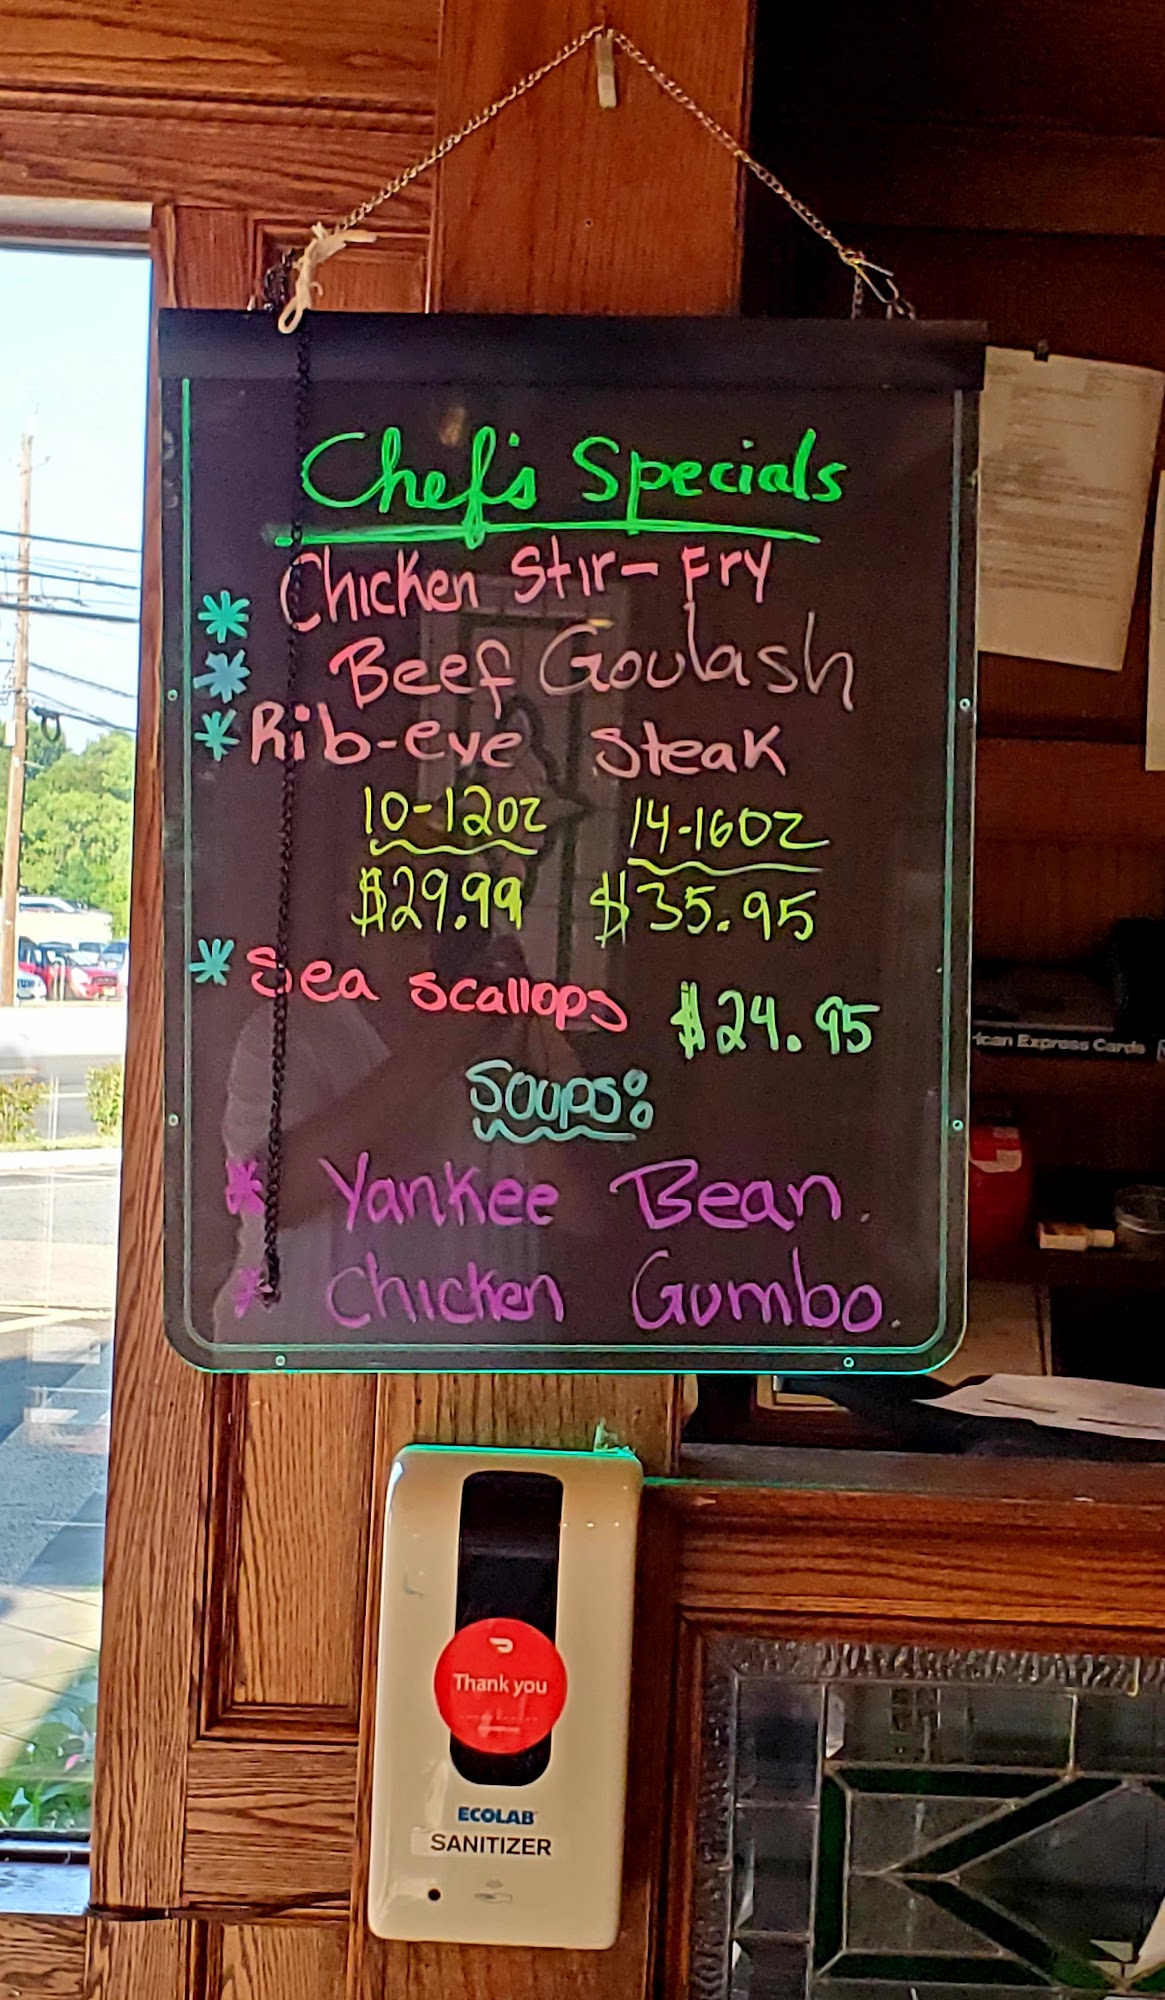 Chef's Specials
* Chicken Stir-Fry
* Beef Goulash
* Rib-eye Steak
10-12oz 14-16oz
$29.99 $35.95
* Sea scallops $24.95
Soups:
* Yankee Bean.
* Chicken Gumbo.
ican Express Cards
Thank you
ECOLAB
SANITIZER